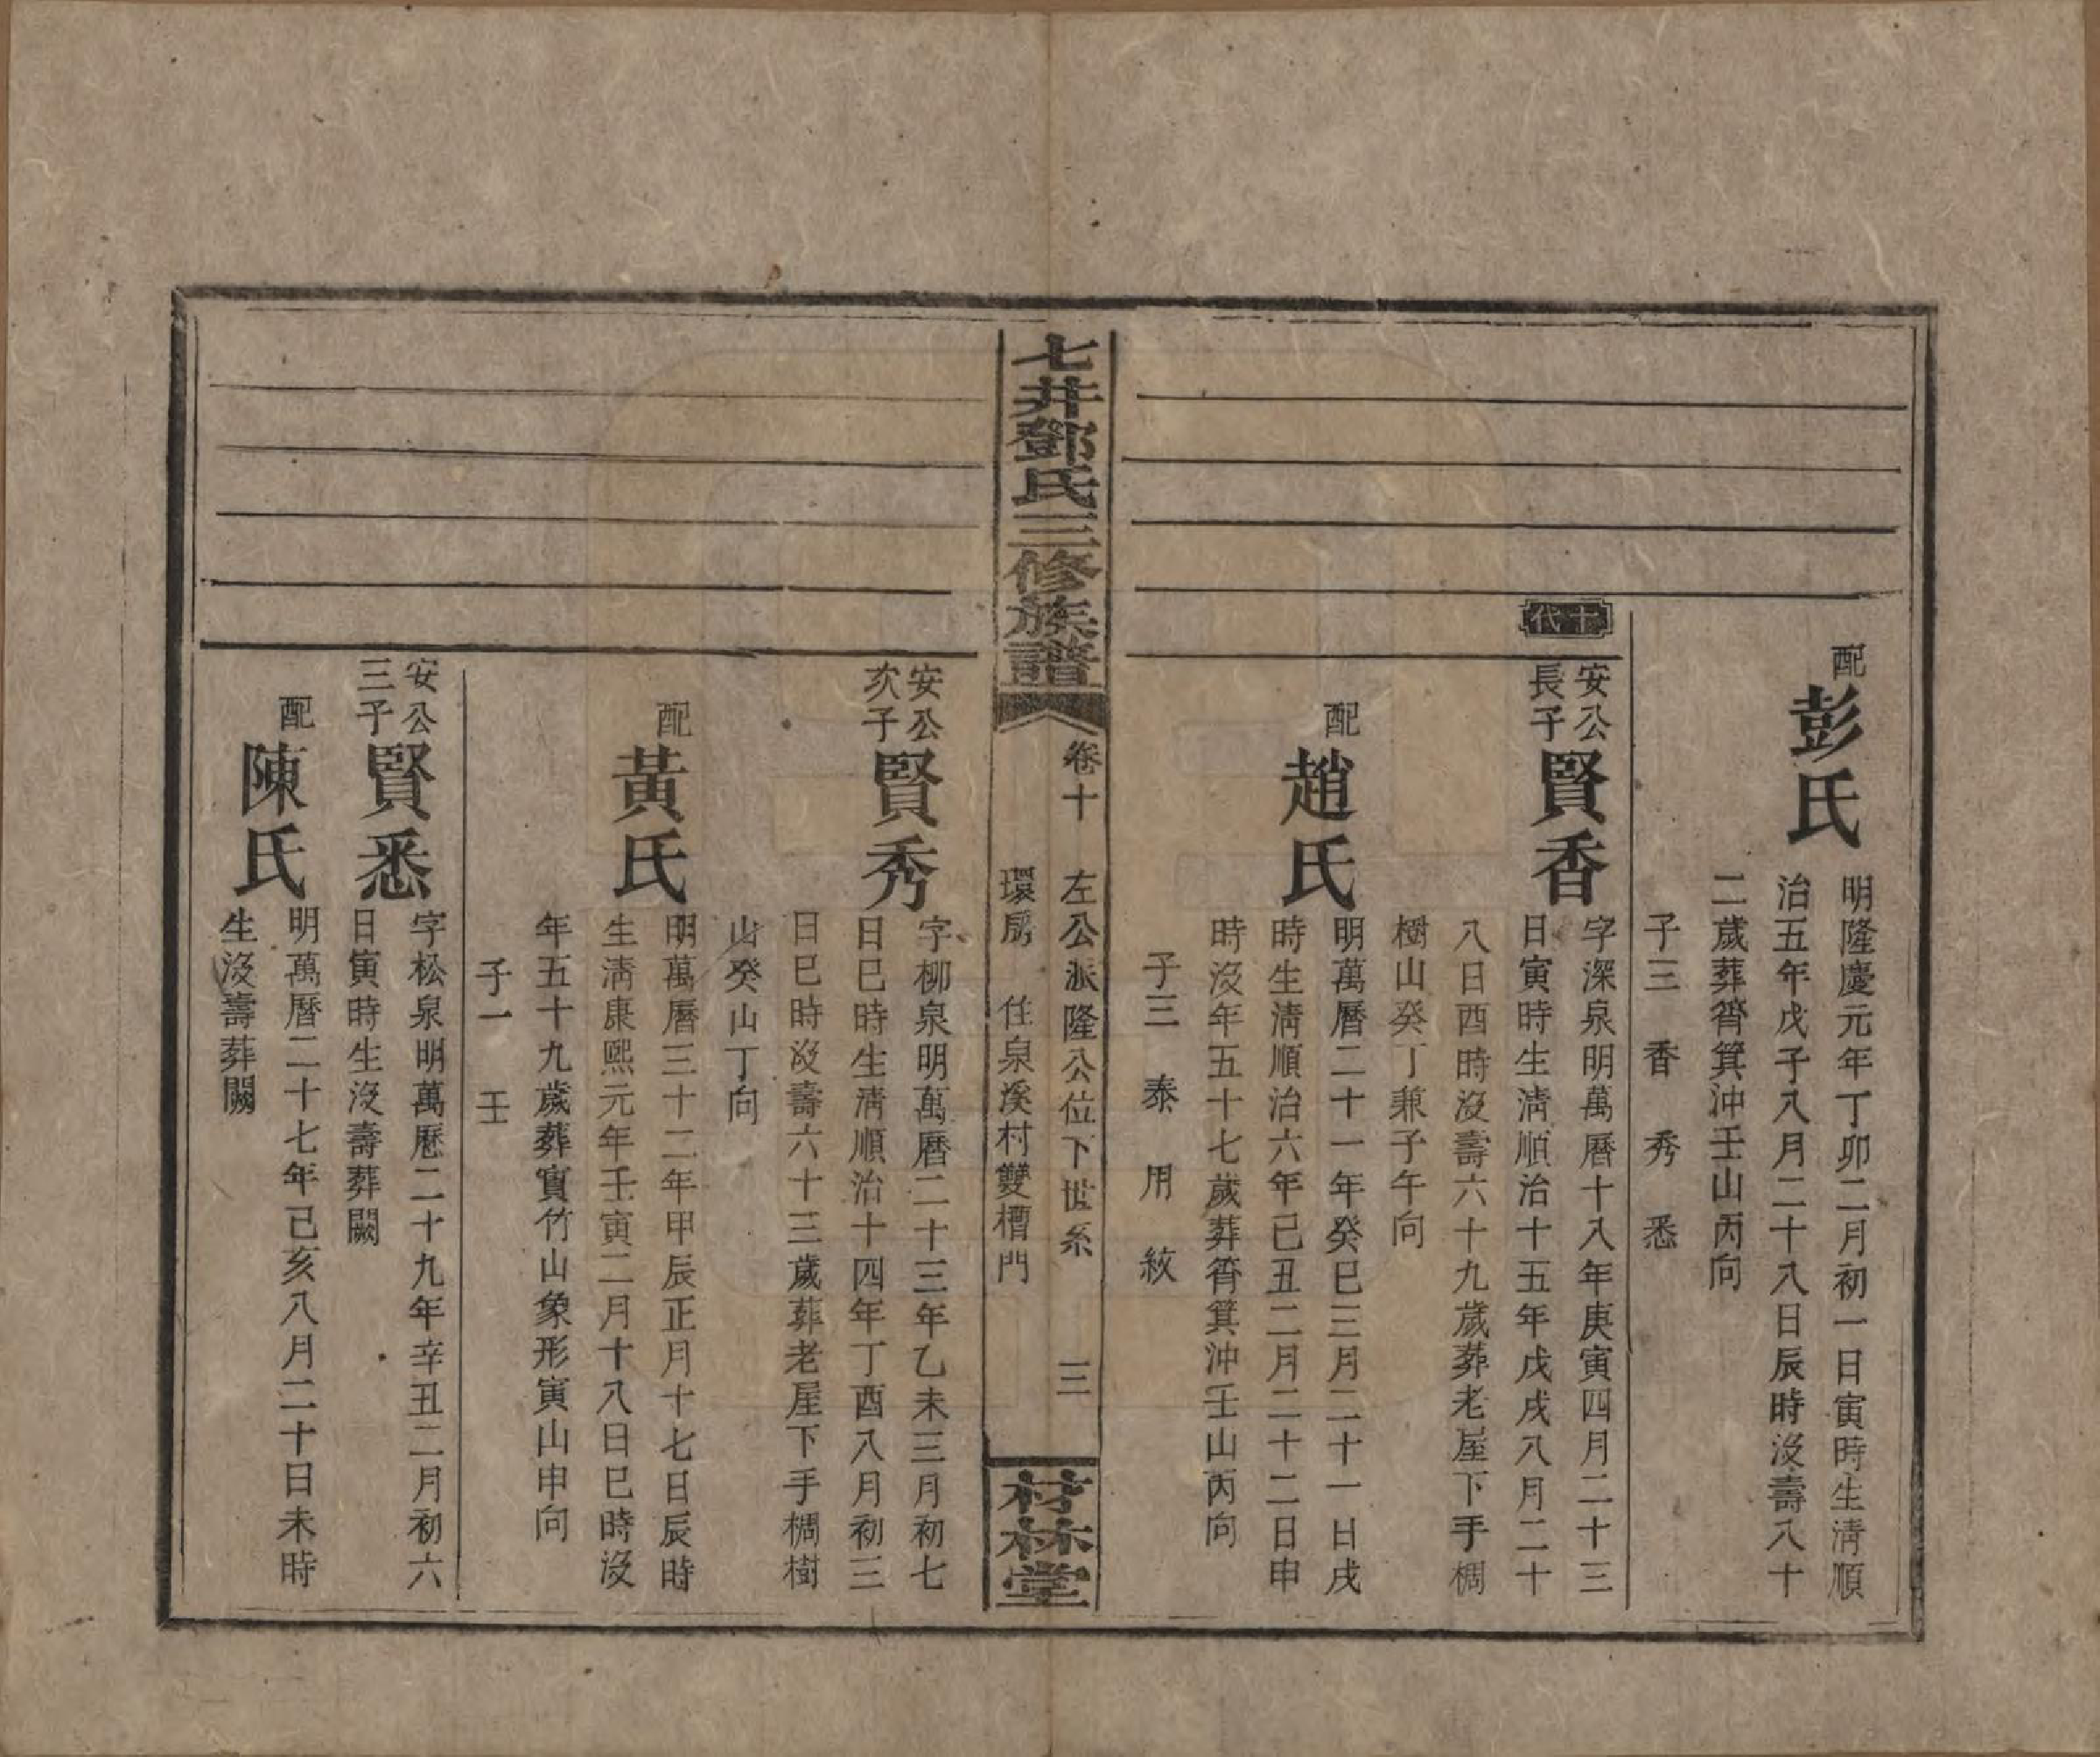 配
彭氏
明隆慶元年丁卯二月初一日寅時生清順
治五年戊子八月二十八日辰時沒壽八十
二歲葬筲箕沖壬山丙向
子三 香 秀 悉
十代
安公
長子
賢香
字深泉明萬曆十八年庚寅四月二十三
日寅時生清順治十五年戊戌八月二十
八日酉時沒壽六十九歲葬老屋下手椆
樹山癸丁兼子午向
配
趙氏
明萬曆二十一年癸巳三月二十一日戌
時生清順治六年己丑二月二十二日申
時沒年五十七歲葬筲箕沖壬山丙向
子三 泰 用 紋
七井鄧氏三修族譜
卷十 左公派隆公位下世系 三
環房 住泉溪村雙槽門
材林堂
安公
次子
賢秀
字柳泉明萬曆二十三年乙未三月初七
日巳時生清順治十四年丁酉八月初三
日巳時沒壽六十三歲葬老屋下手椆樹
山癸山丁向
配
黃氏
明萬曆三十二年甲辰正月十七日辰時
生清康熙元年壬寅二月十八日巳時沒
年五十九歲葬實竹山象形寅山申向
子一 壬
安公
三子
賢悉
字松泉明萬曆二十九年辛丑二月初六
日寅時生沒壽葬闕
配
陳氏
明萬曆二十七年己亥八月二十日未時
生沒壽葬闕